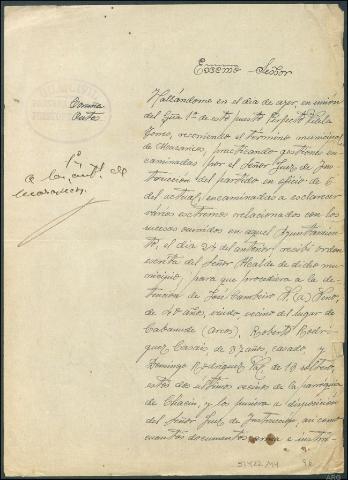 Excmo Señor
Coruña
Hallándome en el día de ayer, en union
del Gia 1º de este puesto Perfecto Varela
Torres, recorriendo el termino municipal
de Mazaricos, practicando gestiones en-
caminadas por el Señor Juez de Ins-
truccion del partido en oficio de 6
del actual, encaminadas a esclarecer
varios estremos relacionados con los
sucesos ocurridos en aquel Ayuntamien-
to, el dia 28 del anterior, recibí orden
escrita del Señor Alcalde de dicho mu-
nicipio, para que procediera a la de-
tencion de José Cambeiro N. (a)
de 40 años, viudo vecino del lugar de
Cabanude (Arcos), Roberto Rodri-
guez Casais de 32 años, casado, y
Domingo Rodriguez de 18 soltero,
estos dos ultimos vecinos de la parroquia
de Chacin, y los pusiera a disposicion
del Señor Juez de Instruccion, asi como
cuantos documentos, armas e instru-
A las
Mazaricos